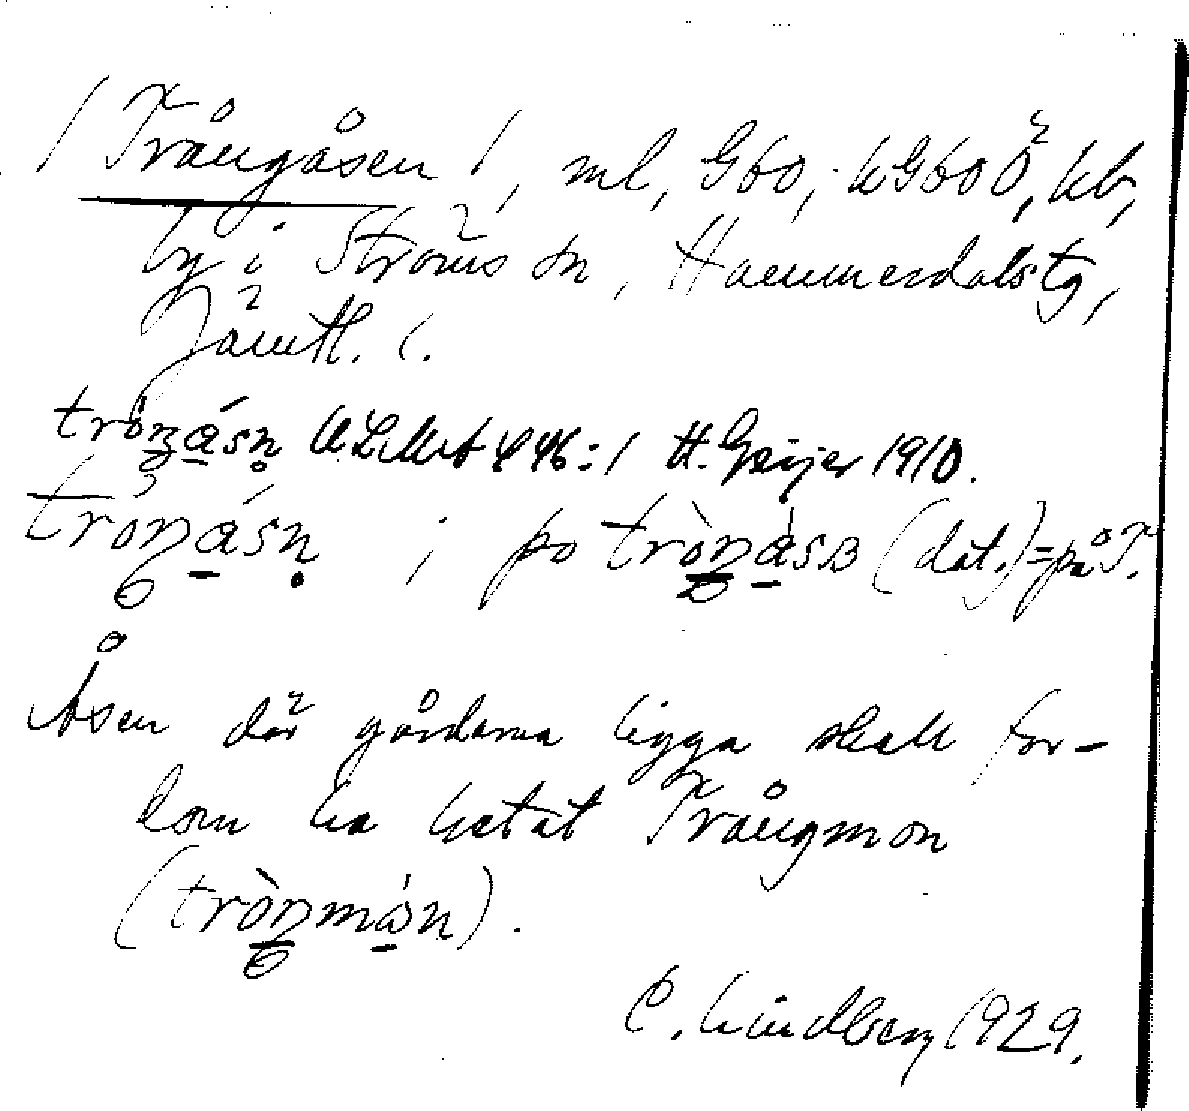 /Trångåsen/, ml, G60, kG60Ö, kb,
by i Ströms sn, Hammerdals tg,
Jämtl. l.
tròŋåsn̥ ULMA 446:1 H. Geijer 1910.
tròŋåsn̥ ; po tròŋåsɞ (dat.) = på T.
Åsen där gårdarna ligga skall for-
dom ha hetat Trångmon
(tròŋmon).
C. Lindberg 1929.